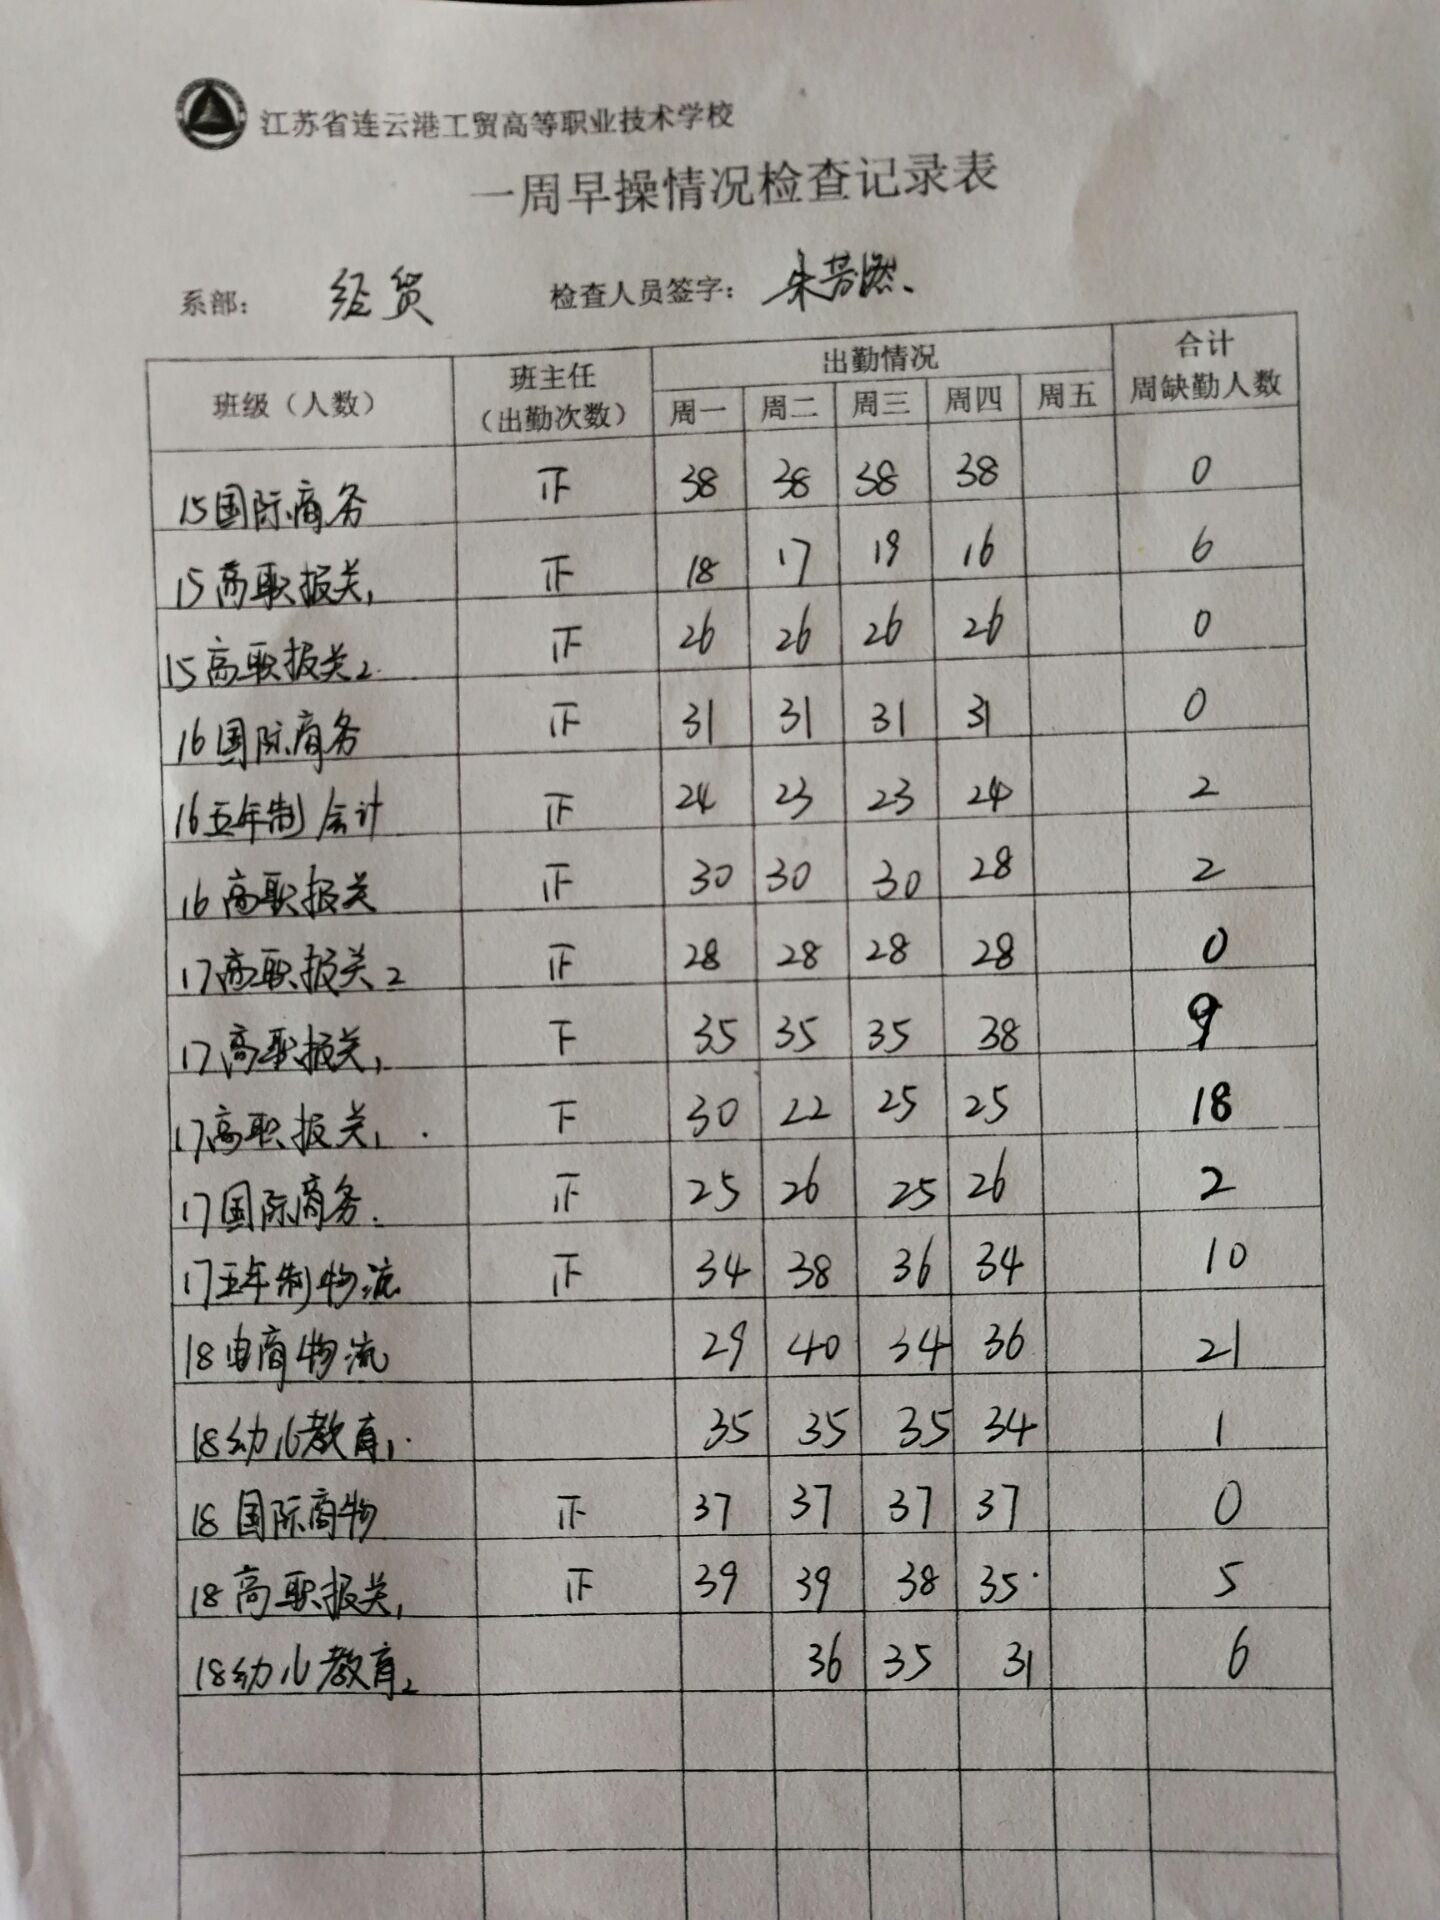 江苏省连云港工贸高等职业技术学校
一周早操情况检查记录表
系部： 经贸 检查人员签字：朱芳燃
班级（人数） 班主任（出勤次数） 出勤情况 合计周缺勤人数
周一 周二 周三 周四 周五
15国际商务 正 38 38 38 38 0
15高职报关1 正 18 17 19 16 6
15高职报关2 正 26 26 26 26 0
16国际商务 正 31 31 31 31 0
16五年制会计 正 24 23 23 24 2
16高职报关 正 30 30 30 28 2
17高职报关2 正 28 28 28 28 0
17高职报关1 下 35 35 35 38 9
17高职报关1 下 30 22 25 25 18
17国际商务 正 25 26 25 26 2
17五年制物流 正 34 38 36 34 10
18电商物流 29 40 34 36 21
18幼儿教育1 35 35 35 34 1
18国际商物 正 37 37 37 37 0
18高职报关1 正 39 39 38 35 5
18幼儿教育2 36 35 31 6